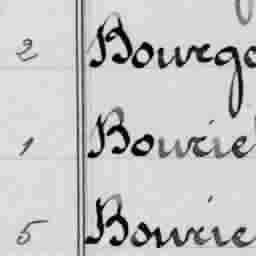 2 Bourgo
1 Bourie
5 Bourie